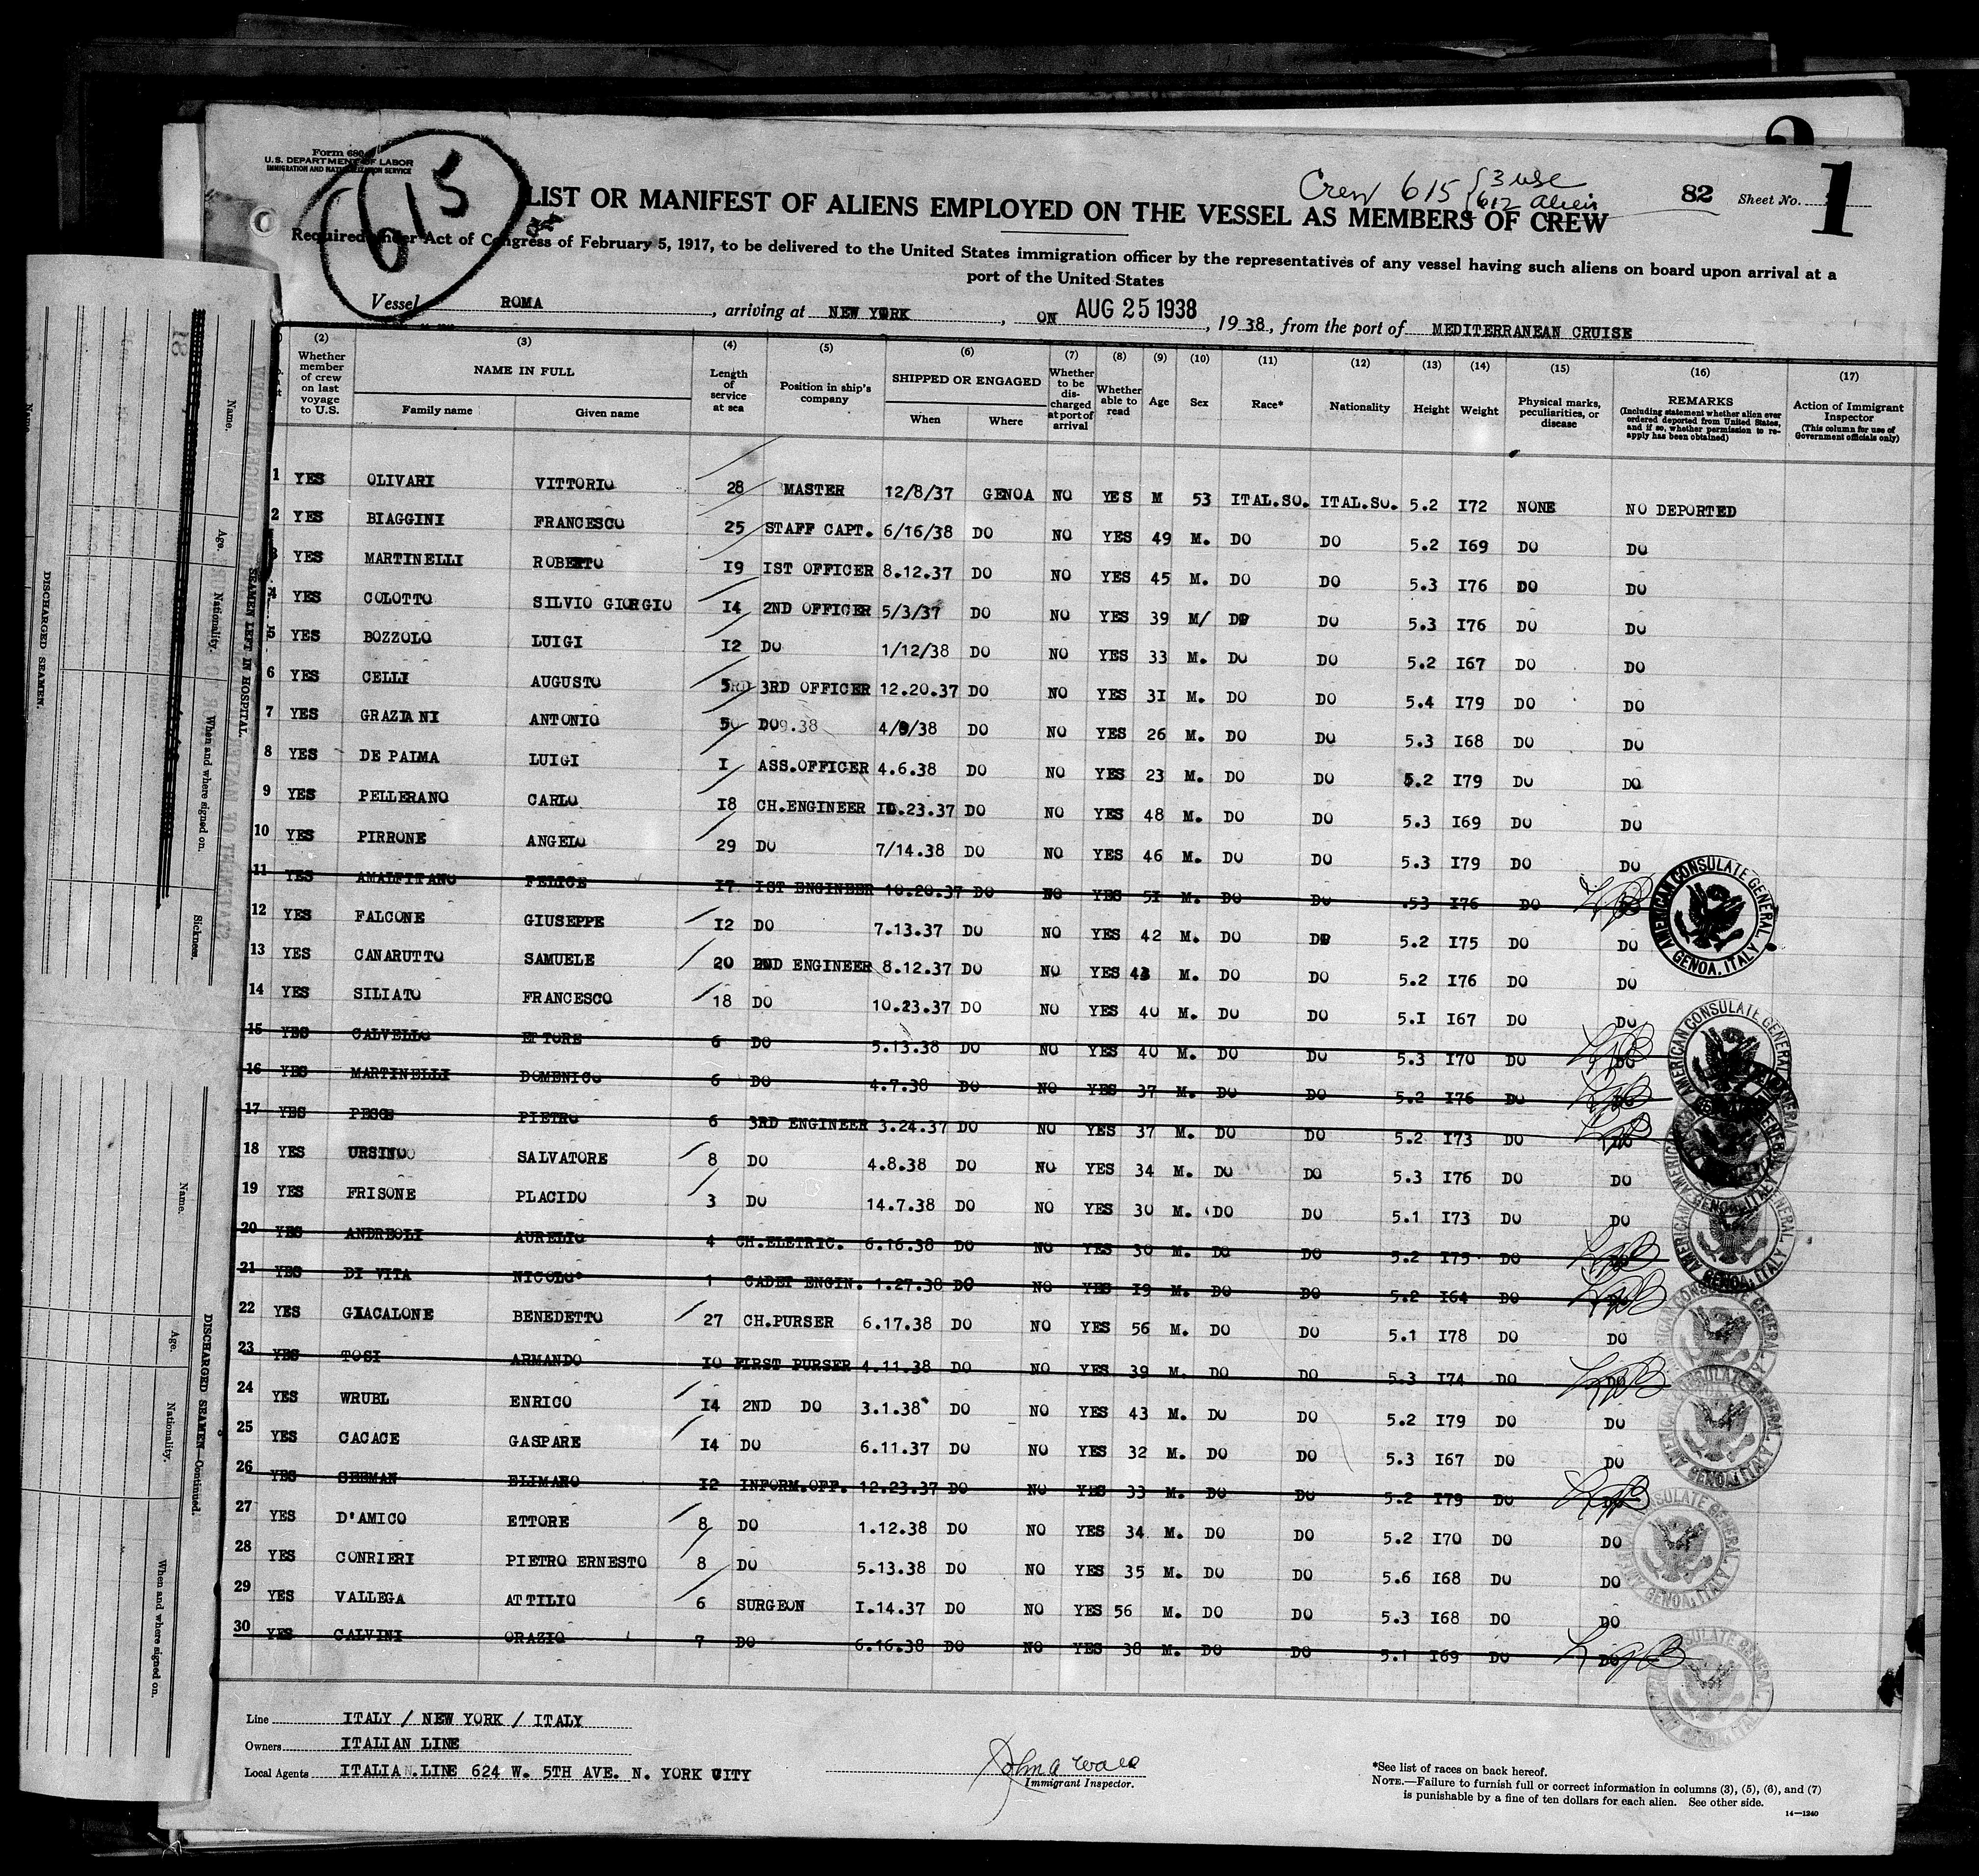 Form 680
U.S. DEPARTMENT OF LABOR
IMMIGRATION AND NATURALIZATION SERVICE
615
Crew 615 {3 USC
{612 Alien
82 Sheet No. 1
LIST OR MANIFEST OF ALIENS EMPLOYED ON THE VESSEL AS MEMBERS OF CREW
Required under Act of Congress of February 5, 1917, to be delivered to the United States immigration officer by the representatives of any vessel having such aliens on board upon arrival at a
port of the United States
Vessel ROMA, arriving at NEW YORK, ON AUG 25 1938, 1938, from the port of MEDITERRANEAN CRUISE
(2) Whether member of crew on last voyage to U.S.
(3) NAME IN FULL Family name Given name
(4) Length of service at sea
(5) Position in ship's company
(6) SHIPPED OR ENGAGED When Where
(7) Whether to be discharged at port of arrival
(8) Whether able to read
(9) Age
(10) Sex
(11) Race*
(12) Nationality
(13) Height
(14) Weight
(15) Physical marks, peculiarities, or disease
(16) REMARKS (Including statement whether alien ever ordered deported from United States, and if so, whether permission to reapply has been obtained)
(17) Action of Immigrant Inspector (This column for use of Government officials only)
1 YES OLIVARI VITTORIO 28 MASTER 12/8/37 GENOA NO YES M 53 ITAL.SO. ITAL.SO. 5.2 I72 NONE NO DEPORTED
2 YES BIAGGINI FRANCESCO 25 STAFF CAPT. 6/16/38 DO NO YES 49 M. DO DO 5.2 I69 DO DO
3 YES MARTINELLI ROBERTO I9 IST OFFICER 8.12.37 DO NO YES 45 M. DO DO 5.3 I76 DO DO
4 YES COLOTTO SILVIO GIORGIO I4 2ND OFFICER 5/3/37 DO NO YES 39 M/ DO DO 5.3 I76 DO DO
5 YES BOZZOLO LUIGI I2 DO 1/12/38 DO NO YES 33 M. DO DO 5.2 I67 DO DO
6 YES CELLI AUGUSTO 5 3RD OFFICER 12.20.37 DO NO YES 3I M. DO DO 5.4 I79 DO DO
7 YES GRAZIANI ANTONIO 5 DO 4/9/38 DO NO YES 26 M. DO DO 5.3 I68 DO DO
8 YES DE PALMA LUIGI I ASS.OFFICER 4.6.38 DO NO YES 23 M. DO DO 5.2 I79 DO DO
9 YES PELLERANO CARLO I8 CH.ENGINEER 10.23.37 DO NO YES 48 M. DO DO 5.3 I69 DO DO
10 YES PIRRONE ANGELO 29 DO 7/14.38 DO NO YES 46 M. DO DO 5.3 I79 DO DO
11 YES AMALFITANO FELICE I7 IST ENGINEER 10.20.37 DO NO YES 5I M. DO DO .53 I76 DO DO
12 YES FALCONE GIUSEPPE I2 DO 7.13.37 DO NO YES 42 M. DO DO 5.2 I75 DO DO
13 YES CANARUTTO SAMUELE 20 2ND ENGINEER 8.12.37 DO NO YES 43 M. DO DO 5.2 I76 DO DO
14 YES SILIATO FRANCESCO I8 DO 10.23.37 DO NO YES 40 M. DO DO 5.I I67 DO DO
15 YES CALVELLO ETTORE 6 DO 5.13.38 DO NO YES 40 M. DO DO 5.3 I70 DO DO
16 YES MARTINELLI DOMENICO 6 DO 4.7.38 DO NO YES 37 M. DO DO 5.2 I76 DO DO
17 YES PESCE PIETRO 6 3RD ENGINEER 3.24.37 DO NO YES 37 M. DO DO 5.2 I73 DO DO
18 YES URSINO SALVATORE 8 DO 4.8.38 DO NO YES 34 M. DO DO 5.3 I76 DO DO
19 YES FRISONE PLACIDO 3 DO 14.7.38 DO NO YES 30 M. DO DO 5.1 I73 DO DO
20 YES ANDREOLI AURELIO 4 CH.ELETRIC. 6.16.38 DO NO YES 30 M. DO DO 5.2 I75 DO DO
21 YES DI VITA NICOLO' 1 CADET ENGIN. 1.27.38 DO NO YES I9 M. DO DO 5.2 I64 DO DO
22 YES GIACALONE BENEDETTO 27 CH.PURSER 6.17.38 DO NO YES 56 M. DO DO 5.1 I78 DO DO
23 YES TOSI ARMANDO IO FIRST PURSER 4.11.38 DO NO YES 39 M. DO DO 5.3 I74 DO DO
24 YES WRUBL ENRICO I4 2ND DO 3.1.38 DO NO YES 43 M. DO DO 5.2 I79 DO DO
25 YES CACACE GASPARE I4 DO 6.11.37 DO NO YES 32 M. DO DO 5.3 I67 DO DO
26 YES SEEMAN ELIMANO I2 INFORM.OFF. 12.23.37 DO NO YES 33 M. DO DO 5.2 I79 DO DO
27 YES D'AMICO ETTORE 8 DO 1.12.38 DO NO YES 34 M. DO DO 5.2 I70 DO DO
28 YES CONRIERI PIETRO ERNESTO 8 DO 5.13.38 DO NO YES 35 M. DO DO 5.6 I68 DO DO
29 YES VALLEGA ATTILIO 6 SURGEON I.14.37 DO NO YES 56 M. DO DO 5.3 I68 DO DO
30 YES CALVINI ORAZIO 7 DO 6.16.38 DO NO YES 38 M. DO DO 5.1 I69 DO DO
AMERICAN CONSULATE GENERAL GENOA, ITALY
Line ITALY / NEW YORK / ITALY
Owners ITALIAN LINE
Local Agents ITALIAN.LINE 624 W. 5TH AVE. N. YORK CITY
Immigrant Inspector.
*See list of races on back hereof.
NOTE.—Failure to furnish full or correct information in columns (3), (5), (6), and (7)
is punishable by a fine of ten dollars for each alien. See other side.
14—1240
DISCHARGED SEAMEN.
SEAMEN LEFT IN HOSPITAL.
Name. Age. Nationality. When and where signed on. Sickness.
DISCHARGED SEAMEN—Continued.
Name. Age. Nationality. When and where signed on.